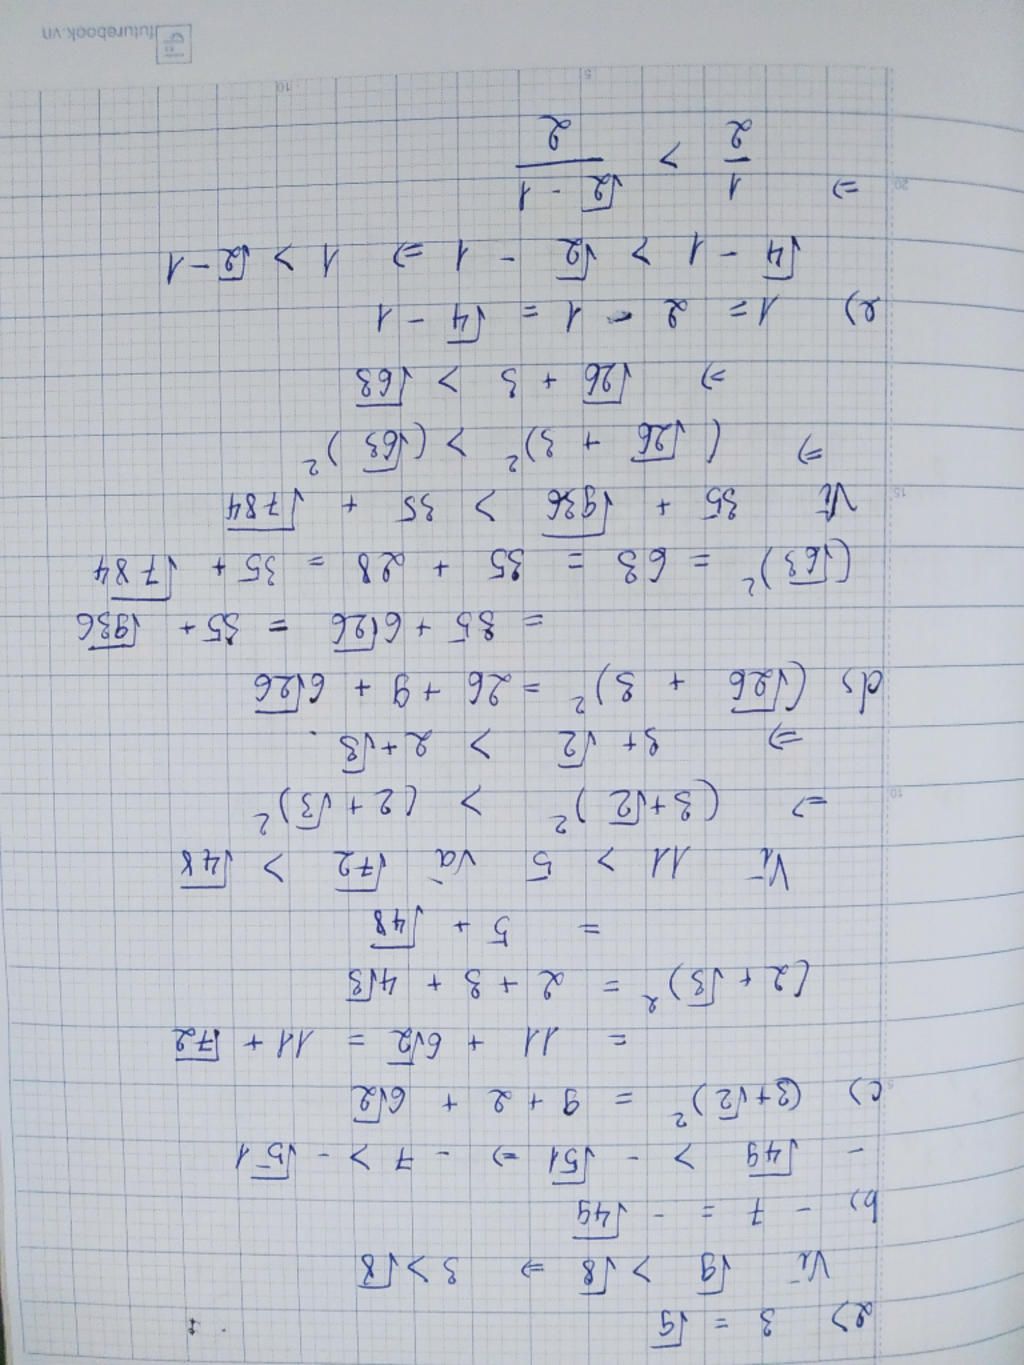 a) 3 = √9
Vì √9 > √8 ⇒ 3 > √8
b) - 7 = - √49
- √49 > - √51 ⇒ - 7 > - √51
c) (3+√2)² = 9 + 2 + 6√2
= 11 + 6√2 = 11 + √72
(2 + √3)² = 2 + 3 + 4√3
= 5 + √48
Vì 11 > 5 và √72 > √48
⇒ (3+√2)² > (2 + √3)²
⇒ 3 + √2 > 2 + √3
d) (√26 + 3)² = 26 + 9 + 6√26
= 35 + 6√26 = 35 + √936
(√63)² = 63 = 35 + 28 = 35 + √784
Vì 35 + √936 > 35 + √784
⇒ (√26 + 3)² > (√63)²
⇒ √26 + 3 > √63
e) 1 = 2 - 1 = √4 - 1
√4 - 1 > √2 - 1 ⇒ 1 > √2 - 1
⇒ 1/2 > (√2 - 1)/2
5
10
15
20
5
10
futurebook.vn